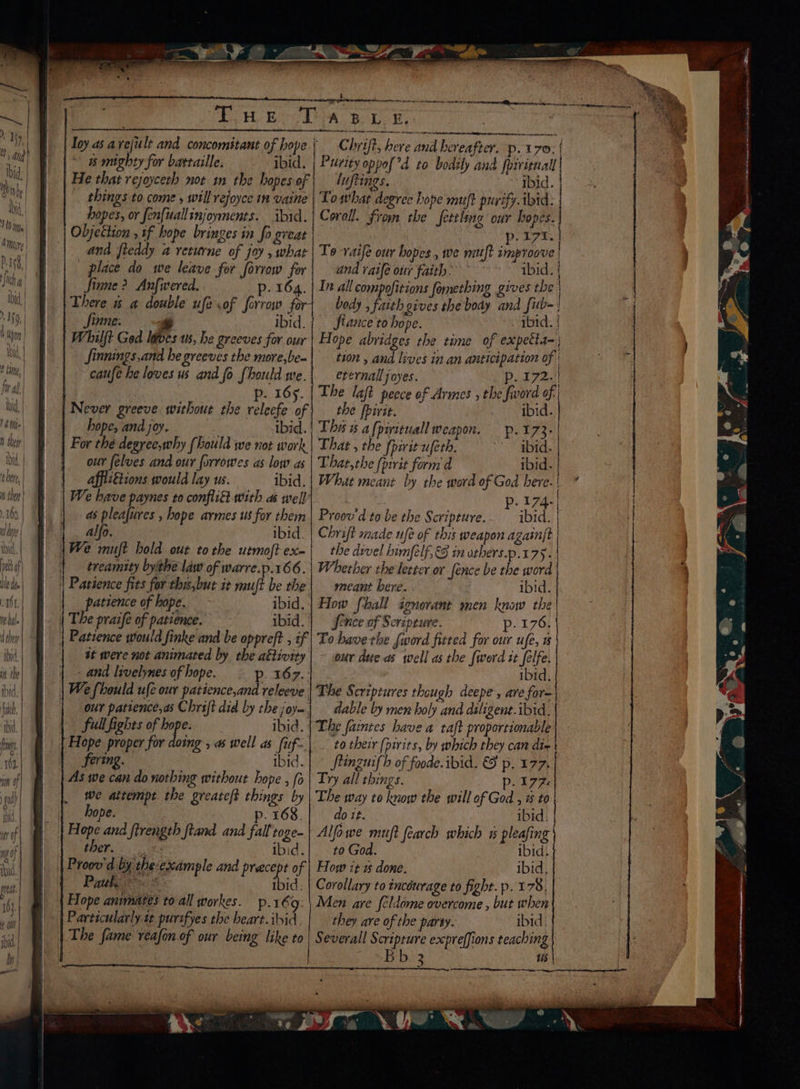 THE TABLE.
Ioy as a result and concomitant of hope
is mighty for battaille. ibid.
He that rejoyceth not in the hopes of
things to come, will rejoyce in vaine
hopes, or sensuall injoyments. ibid.
Objection, if hope bringes in so great
and steddy a returne of joy, what
place do we leave for sorrow for
sinne? Answered. p. 164.
There is a double use of sorrow for
sinne. ibid.
Whilst God loves us, he greeves for our
sinnings, and he greeves the more, be-
cause he loves us and so should we.
p. 165.
Never greeve without the releefe of
hope, and joy. ibid.
For the degree, why should we not work
our selves and our sorrowes as low as
afflictions would lay us. ibid.
We have paynes to conflict with as well
as pleasures, hope armes us for them
also. ibid.
We must hold out to the utmost ex-
treamity by the law of warre. p. 166.
Patience fits for this, but it must be the
patience of hope. ibid.
The praise of patience. ibid.
Patience would sinke and be opprest, if
it were not animated by the activity
and livelynes of hope. p. 167.
We should use our patience, and releeve
our patience, as Christ did by the joy-
full sights of hope. ibid.
Hope proper for doing, as well as suf-
fering. ibid.
As we can do nothing without hope, so
we attempt the greatest things by
hope. p. 168.
Hope and strength stand and fall toge-
ther. ibid.
Proov'd by the example and precept of
Paul. ibid.
Hope animates to all workes. p. 169.
Particularly it purifyes the heart. ibid.
The same reason of our being like to
Christ, here and hereafter. p. 170.
Purity oppos'd to bodily and spirituall
lustings. ibid.
To what degree hope must purify. ibid.
Coroll. from the setling our hopes.
p. 171.
To raise our hopes, we must improove
and raise our faith. ibid.
In all compositions something gives the
body, faith gives the body and sub-
stance to hope. ibid.
Hope abridges the time of expecta-
tion, and lives in an anticipation of
eternall joyes. p. 172.
The last peece of Armes, the sword of
the spirit. ibid.
This is a spirituall weapon. p. 173.
That, the spirit useth. ibid.
That, the spirit form'd ibid.
What meant by the word of God here.
p. 174.
Proov'd to be the Scripture. ibid.
Christ made use of this weapon against
the divel himself, & in others. p. 175.
Whether the letter or sence be the word
meant here. ibid.
How shall ignorant men know the
sence of Scripture. p. 176.
To have the sword fitted for our use, is
our due as well as the sword it selfe.
ibid.
The Scriptures though deepe, are for-
dable by men holy and diligent. ibid.
The saintes have a tast proportionable
to their spirits, by which they can di-
stinguish of foode. ibid. & p. 177.
Try all things. p. 177.
The way to know the will of God, is to
do it. ibid.
Also we must search which is pleasing
to God. ibid.
How it is done. ibid.
Corollary to incourage to fight. p. 178.
Men are seldome overcome, but when
they are of the party. ibid.
Severall Scripture expressions teaching
Bb 3 us